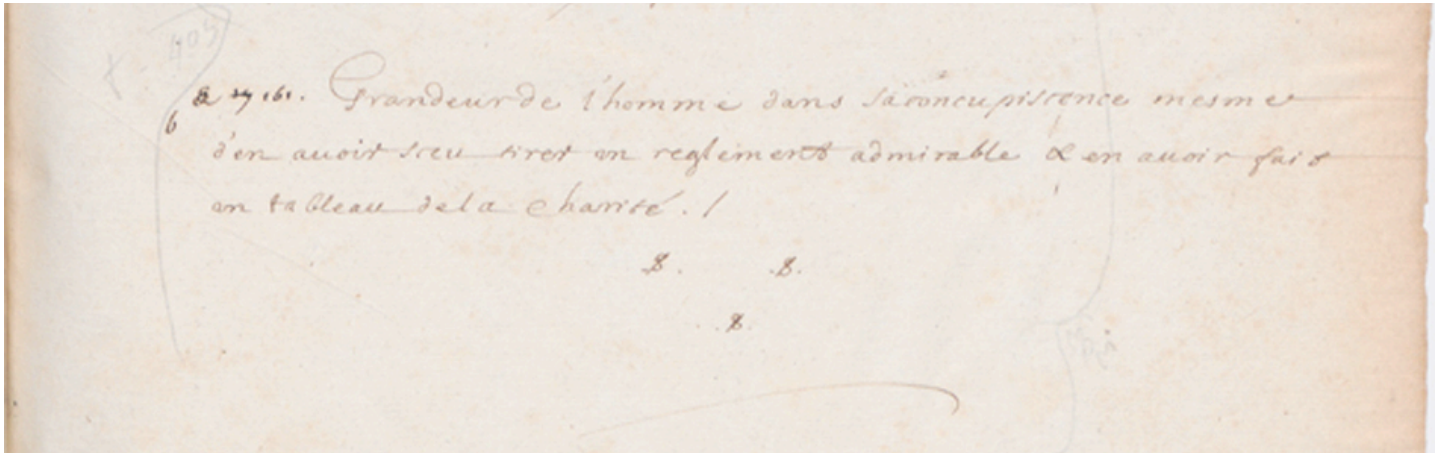 405
161. Grandeur de l'homme dans sa concupiscence mesme
b
d'en auoir sceu tirer un reglement admirable & en auoir fait
un tableau de la charité. /